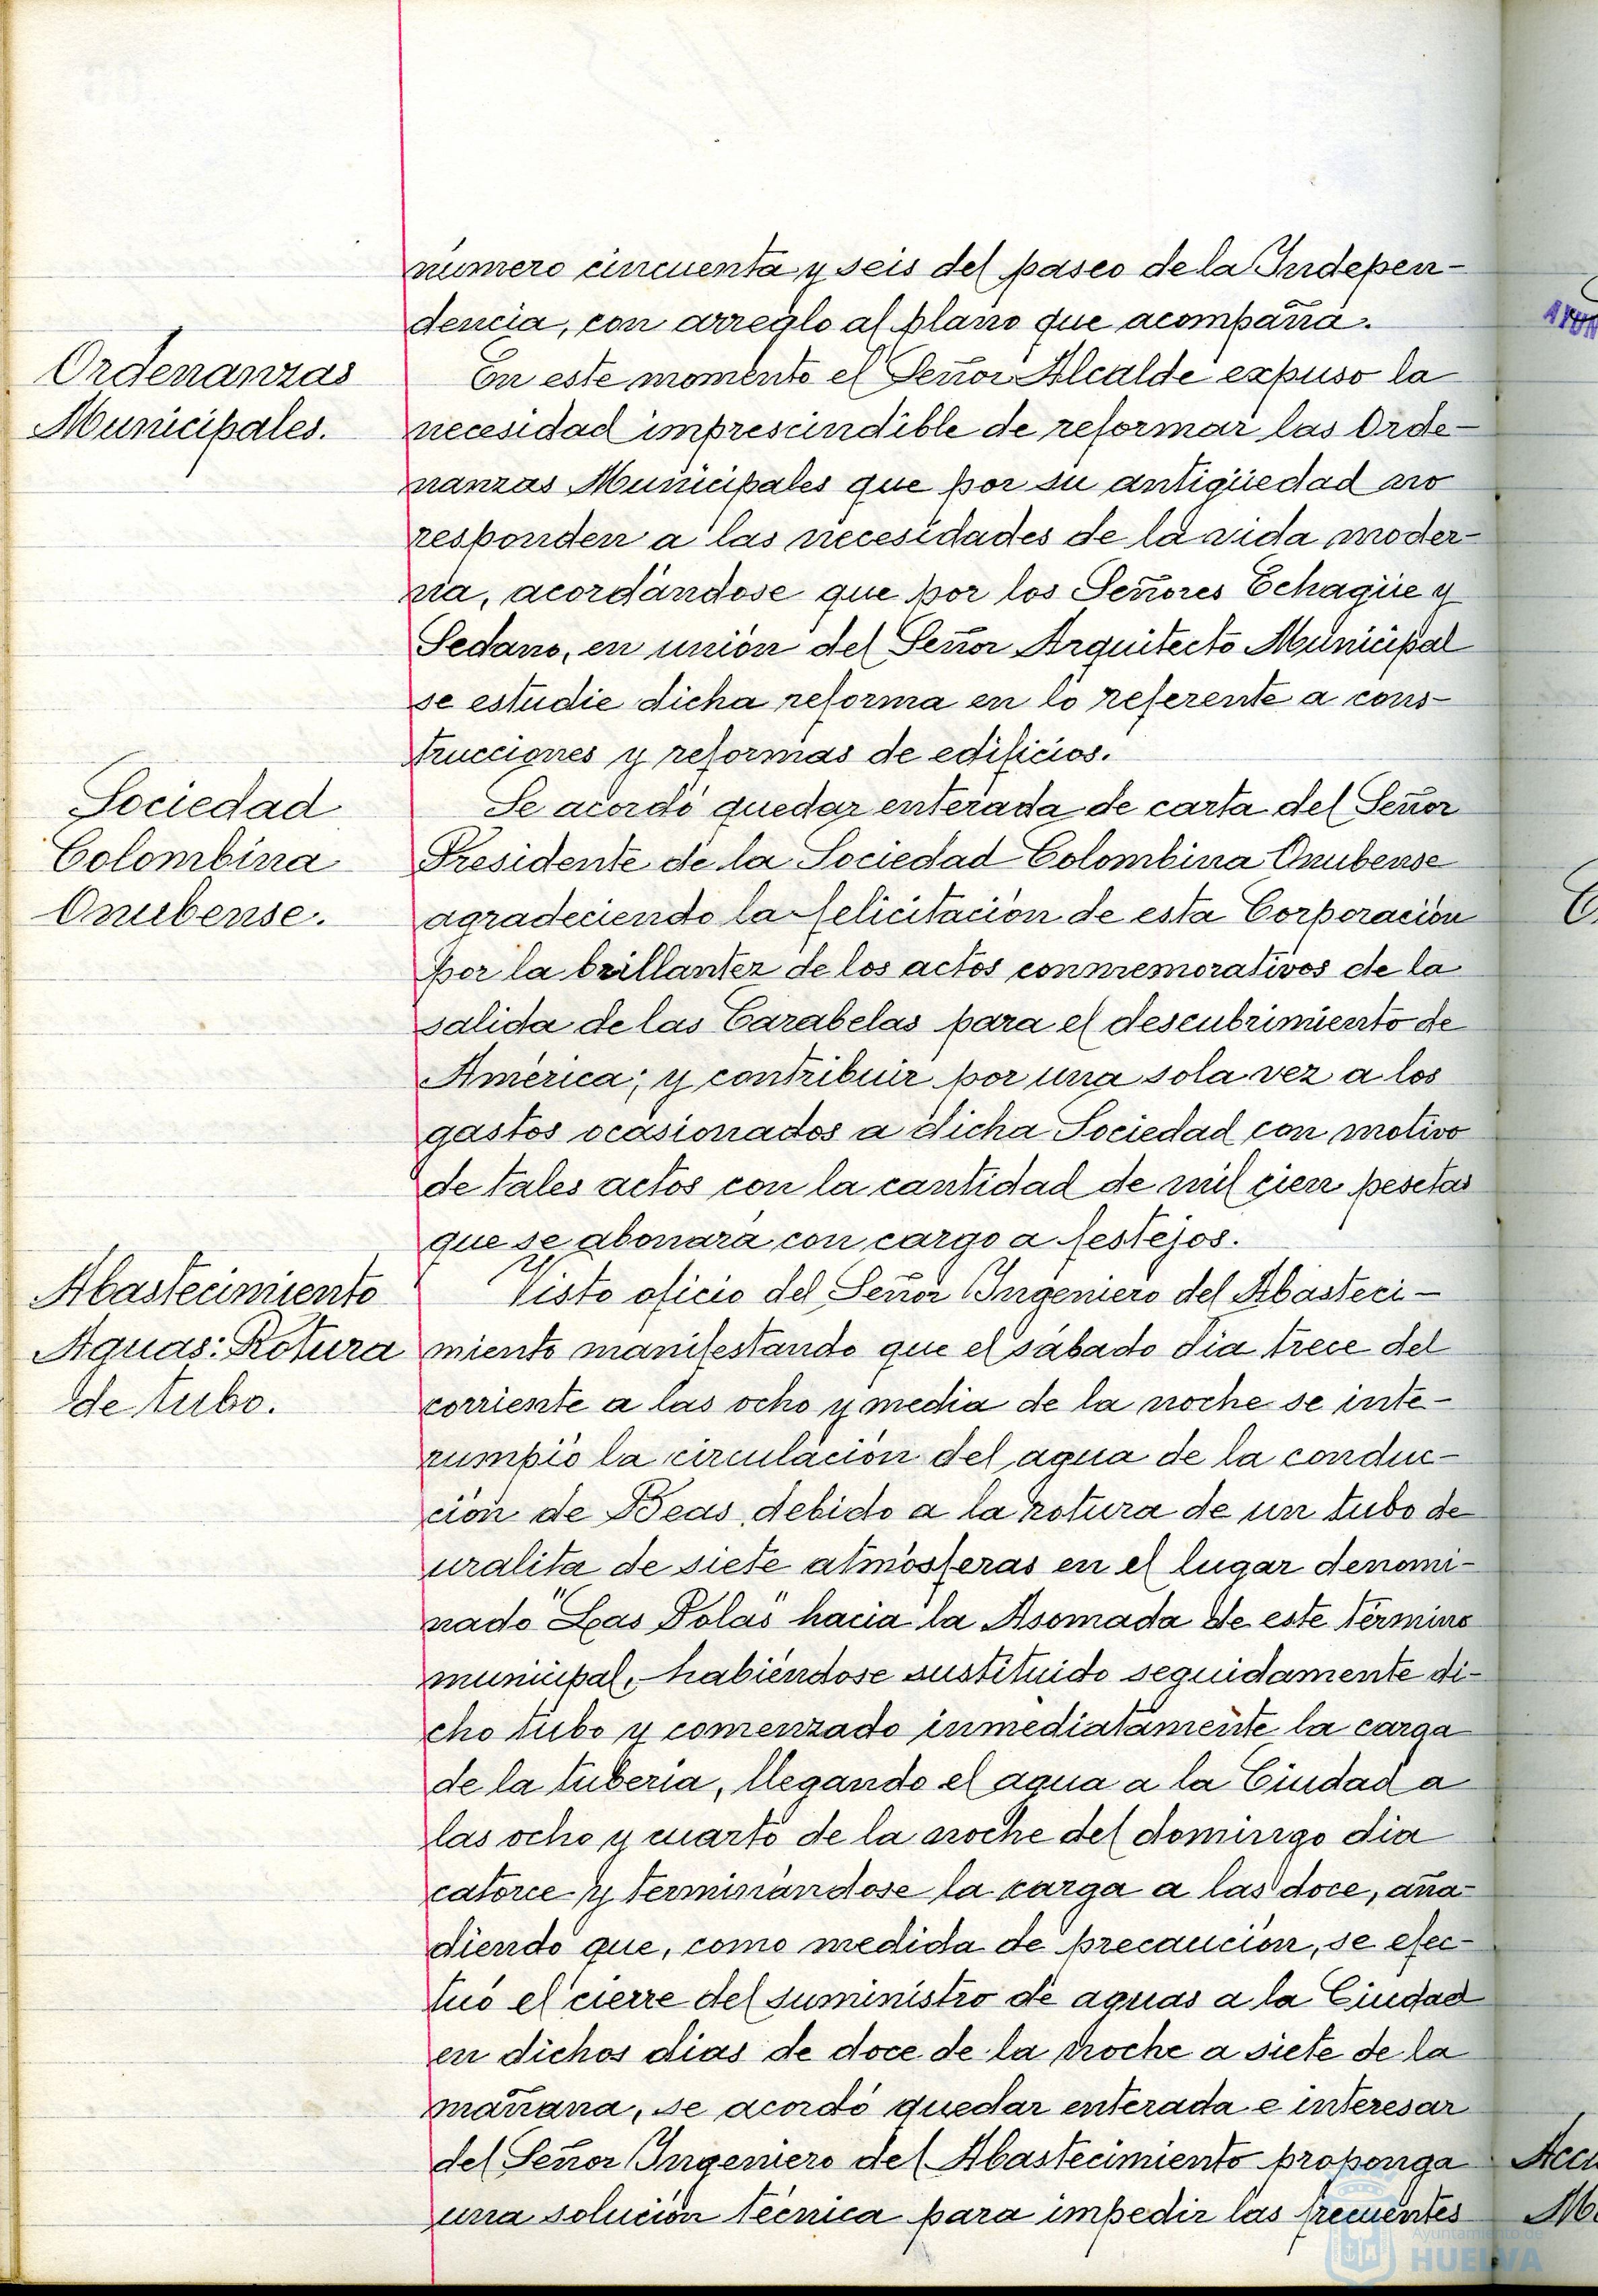 número cincuenta y seis del paseo de la Indepen-
dencia, con arreglo al plano que acompaña.
Ordenanzas
Municipales.
En este momento el Señor Alcalde expuso la
necesidad imprescindible de reformar las Orde-
nanzas Municipales que por su antigüedad no
responden a las necesidades de la vida moder-
na, acordándose que por los Señores Echagüe y
Sedano, en unión del Señor Arquitecto Municipal
se estudie dicha reforma en lo referente a cons-
trucciones y reformas de edificios.
Sociedad
Colombina
Onubense.
Se acordó quedar enterada de carta del Señor
Presidente de la Sociedad Colombina Onubense
agradeciendo la felicitación de esta Corporación
por la brillantez de los actos conmemorativos de la
salida de las Carabelas para el descubrimiento de
América; y contribuir por una sola vez a los
gastos ocasionados a dicha Sociedad con motivo
de tales actos con la cantidad de mil cien pesetas
que se abonará con cargo a festejos.
Abastecimiento
Aguas: Rotura
de tubo.
Visto oficio del Señor Ingeniero del Abasteci-
miento manifestando que el sábado día trece del
corriente a las ocho y media de la noche se inte-
rumpió la circulación del agua de la conduc-
ción de Beas debido a la rotura de un tubo de
uralita de siete atmósferas en el lugar denomi-
nado "Las Polas" hacia la Asomada de este término
municipal, habiéndose sustituido seguidamente di-
cho tubo y comenzado inmediatamente la carga
de la tubería, llegando el agua a la Ciudad a
las ocho y cuarto de la noche del domingo dia
catorce y terminándose la carga a las doce, aña-
diendo que, como medida de precaución, se efec-
tuó el cierre del suministro de aguas a la Ciudad
en dichos dias de doce de la noche a siete de la
mañana, se acordó quedar enterada e interesar
del Señor Ingeniero del Abastecimiento proponga
una solución técnica para impedir las frecuentes
Ayuntamiento de
HUELVA